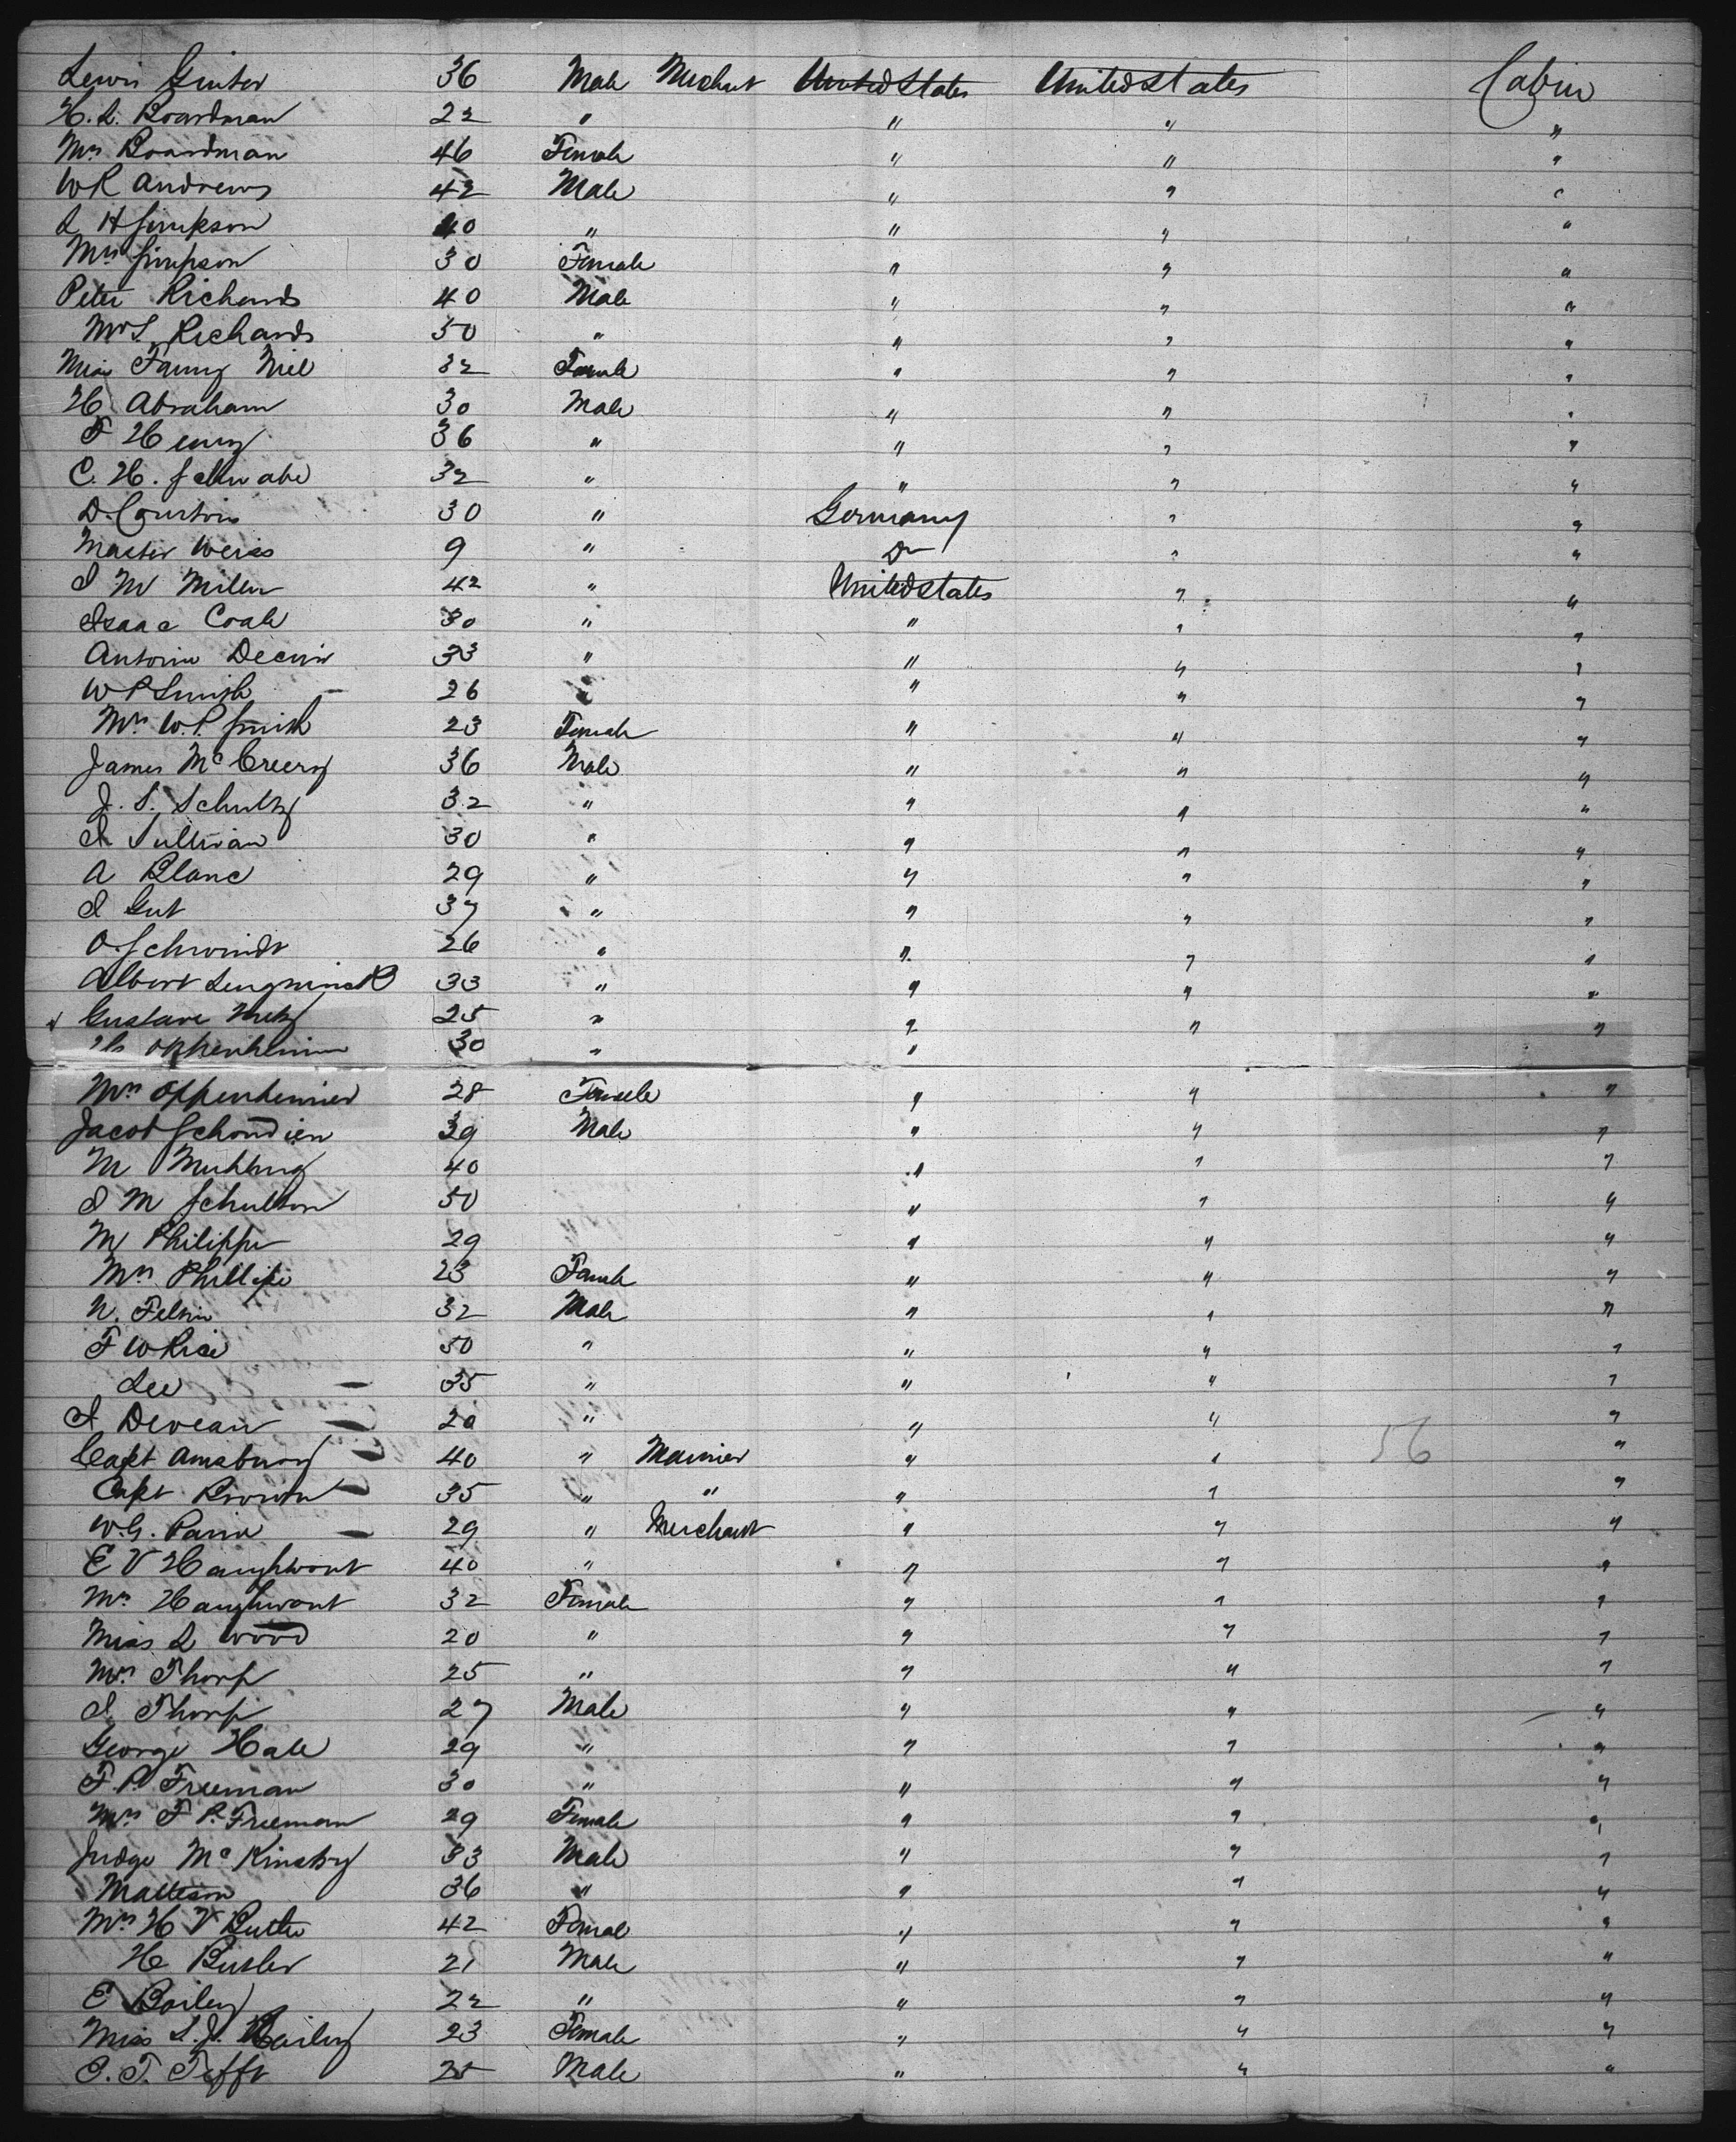 Lewis Ginter 36 Male Merchant United States United States Cabin
H. L. Boardman 22 " " " "
Mrs Boardman 46 Female " " "
W R Andrews 42 Male " " "
L H Simpson 40 " " " "
Mrs Simpson 30 Female " " "
Peter Richards 40 Male " " "
Richards 50 " " " "
Miss Fanny 32 Female " " "
H Abraham 30 Male " " "
F Henry 36 " " " "
C. H. Schwabe 32 " " " "
D. Courtois 30 " Germany " "
Master Weiss 9 " Do " "
I M Miller 42 " United States " "
Isaac Coale 30 " " " "
Antoine Decuir 33 " " " "
W P Smith 26 " " " "
Mrs W. P. Smith 23 Female " " "
James McCreery 36 Male " " "
J. S. Schultz 32 " " " "
Sullivan 30 " " " "
A Blanc 29 " " " "
I Gut 37 " " " "
O. Schwindt 26 " " " "
Albert 33 " " " "
Gustave 25 " " " "
Oppenheimer 30 " "
Mrs Oppenheimer 28 Female " " "
Jacob 39 Male " " "
M 40 " " "
I M 50 " " "
M Philippi 29 " " "
Mrs Phillipi 23 Female " " "
N. 32 Male " " "
F W Rice 50 " " " "
Lee 35 " " " "
Devean 20 " " " "
Capt Amsbury 40 " Mariner " " "
Capt Brown 35 " " " " "
W. G. 29 " Merchant " " "
E V Haughwout 40 " " " "
Mrs Haughwout 32 Female " " "
Miss L Wood 20 " " " "
Mrs Thorp 25 " " " "
I. Thorp 27 Male " " "
George Hale 29 " " " "
F. P. Freeman 30 " " " "
Mrs F P. Freeman 29 Female " " "
Judge McKinstry 33 Male " " "
Matteson 36 " " " "
Mrs H V Butler 42 Female " " "
H Butler 21 Male " " "
E Bailey 22 " " " "
Miss S. J. Bailey 23 Female " " "
E. T. Tefft 25 Male " " "
56